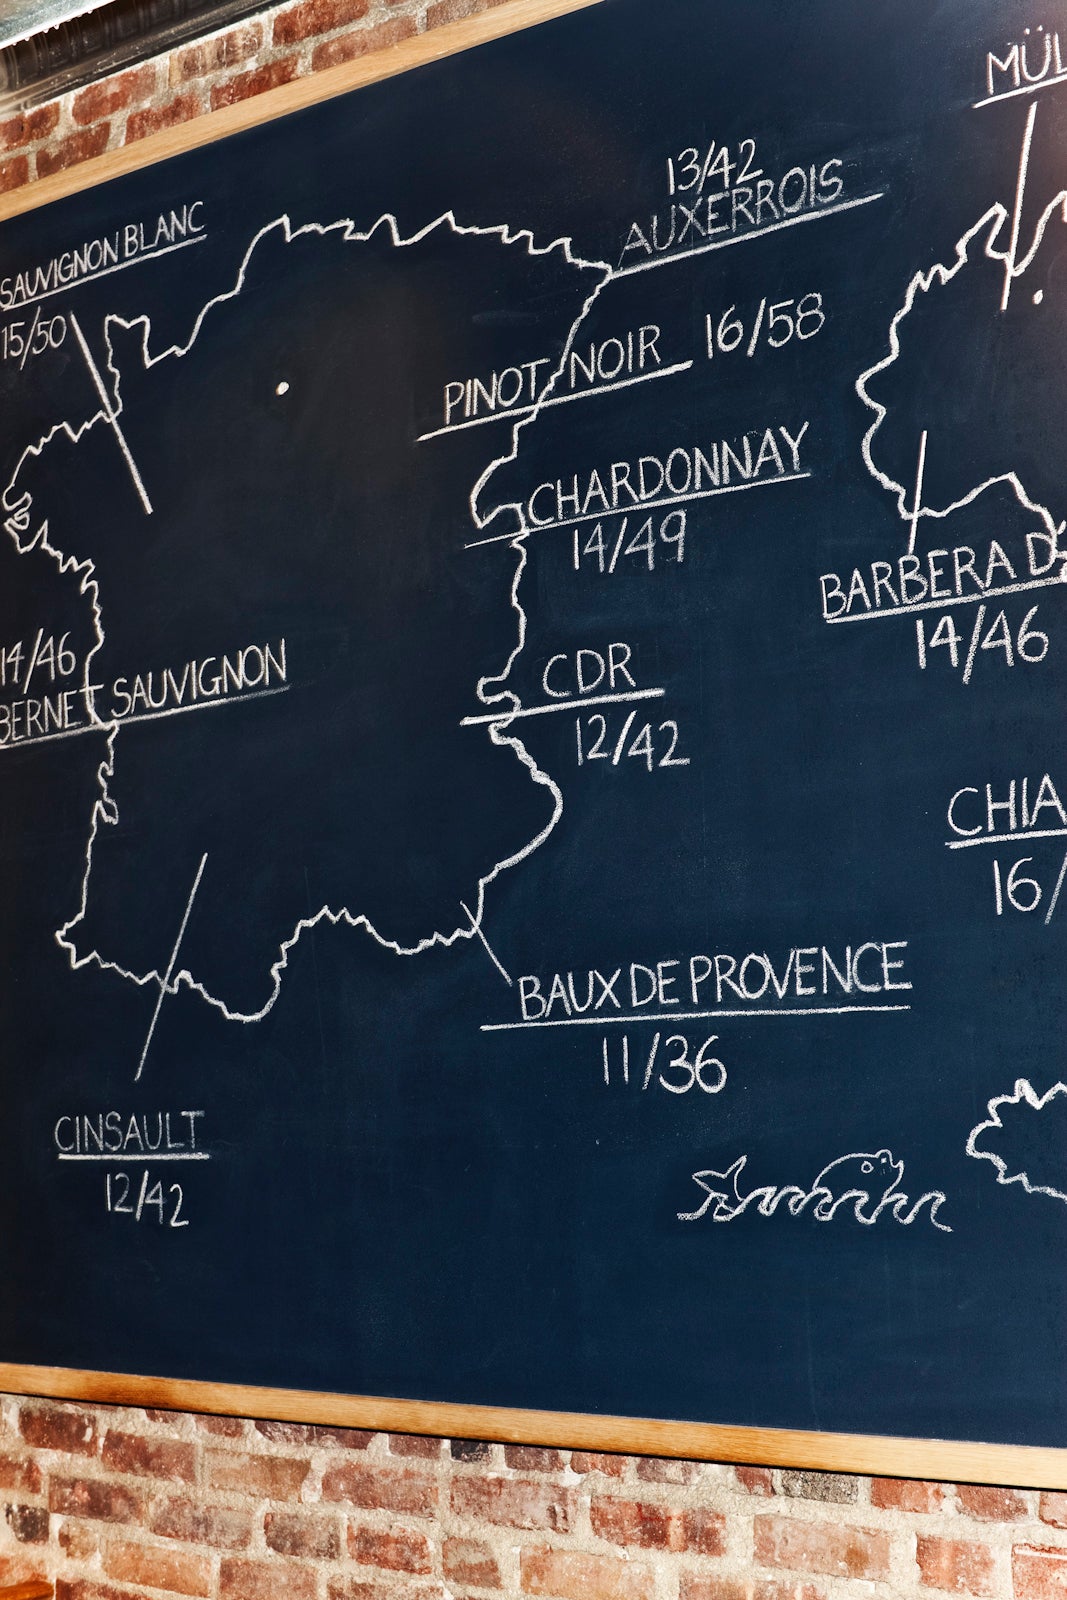 MÜL
13/42
AUXERROIS
SAUVIGNON BLANC
15/50
PINOT NOIR 16/58
CHARDONNAY
14/49
BARBERA D
14/46
14/46
BERNET SAUVIGNON
CDR
12/42
CHIA
16/
BAUX DE PROVENCE
11/36
CINSAULT
12/42